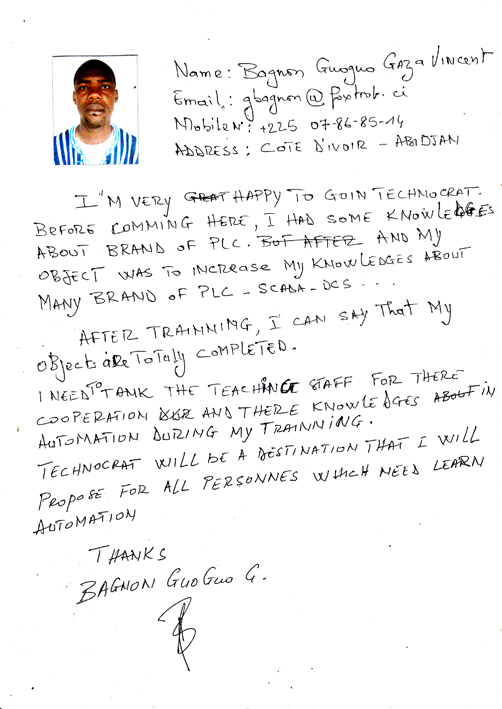 Name: Bagnon Guoguo Gaza Vincent
Email: gbagnon@foxtrot.ci
Mobile N°: +225 07-86-85-14
ADDRESS: COTE D'IVOIR - ABIDJAN
I'M VERY GRAT HAPPY TO GOIN TECHNOCRAT.
BEFORE COMMING HERE, I HAD SOME KNOWLEDGES
ABOUT BRAND OF PLC. BUT AFTER AND MY
OBJECT WAS TO INCREASE MY KNOWLEDGES ABOUT
MANY BRAND OF PLC - SCADA - DCS ...
AFTER TRAINNING, I CAN SAY THAT MY
OBJECTS ARE TOTALY COMPLETED.
I NEED TO TANK THE TEACHING STAFF FOR THERE
COOPERATION AND THERE KNOWLEDGES ABOUT IN
AUTOMATION DURING MY TRAINNING.
TECHNOCRAT WILL BE A DESTINATION THAT I WILL
PROPOSE FOR ALL PERSONNES WHICH NEED LEARN
AUTOMATION
THANKS
BAGNON GUOGUO G.